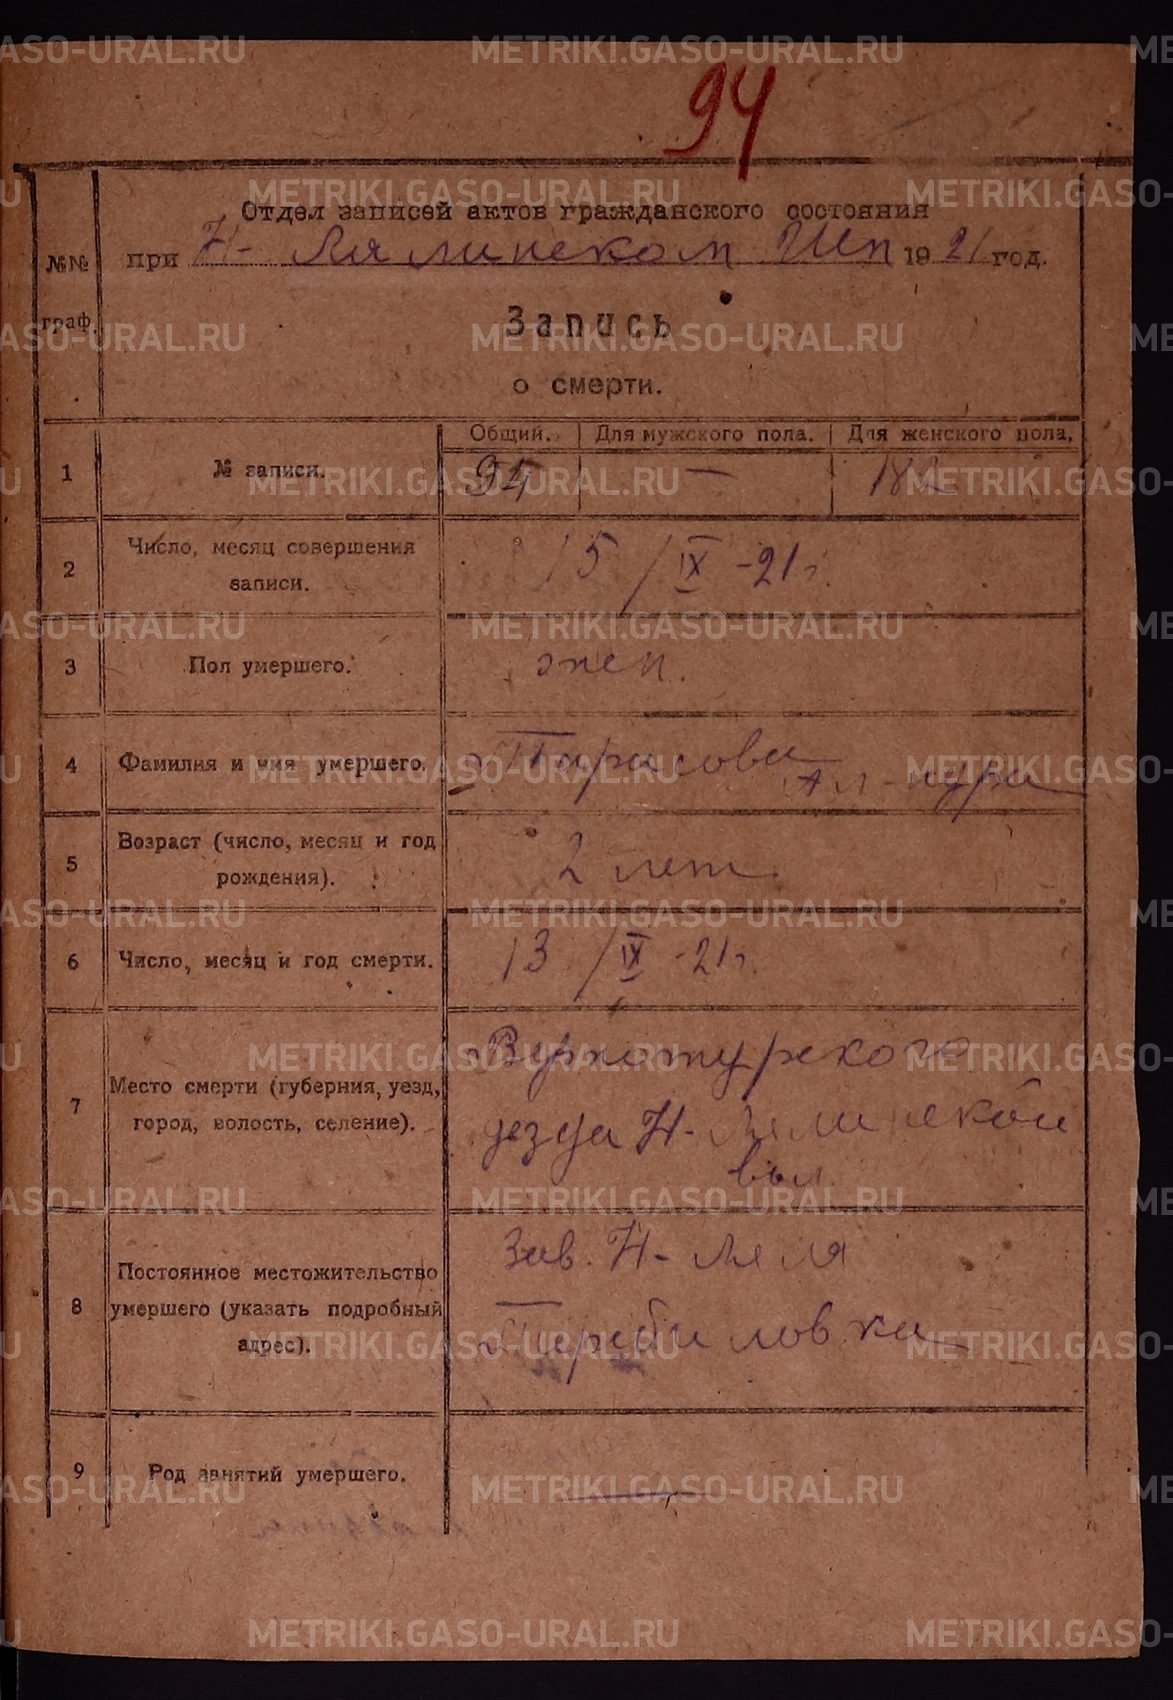 94
Отдел записей актов гражданского состояния
№№ при Н-Лялинском Исп 1921 год.
граф.
Запись
о смерти.
Общий. Для мужского пола. Для женского пола,
1 № записи. 94 — 182
2 Число, месяц совершения
записи. 15/IX-21г.
3 Пол умершего. жен.
4 Фамилия и имя умершего. Тарасова
5 Возраст (число, месяц и год
рождения). 2 лет.
6 Число, месяц и год смерти. 13/IX-21г.
Верхотурского
7 Место смерти (губерния, уезд,
город, волость, селение). уезда Н-Лялинской
вол.
Зав. Н-Ляля
8 Постоянное местожительство
умершего (указать подробный
адрес).
9 Род занятий умершего. —
METRIKI.GASO-URAL.RU